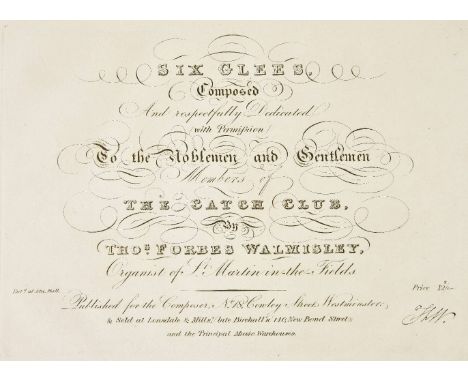 SIX GLEES,
Composed
And respectfully Dedicated
with Permission
To the Noblemen and Gentlemen
Members of
THE CATCH CLUB,
By
THOS. FORBES WALMISLEY,
Organist of St. Martin in the Fields
Entd. at Sta. Hall. Price 12/-
Published for the Composer, No. 18, Cowley Street, Westminster.
& Sold at Lonsdale & Mills', late Birchall's 140, New Bond Street,
and the Principal Music Warehouses.